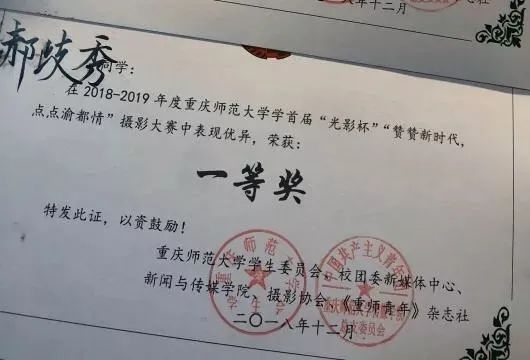 八年十二月
郝歧秀同学：
在2018-2019年度重庆师范大学学首届“光影杯”“赞赞新时代，
点点渝都情”摄影大赛中表现优异，荣获：
一等奖
特发此证，以资鼓励！
重庆师范大学学生委员会、校团委新媒体中心、
新闻与传媒学院、摄影协会、《重师青年》杂志社
二〇一八年十二月